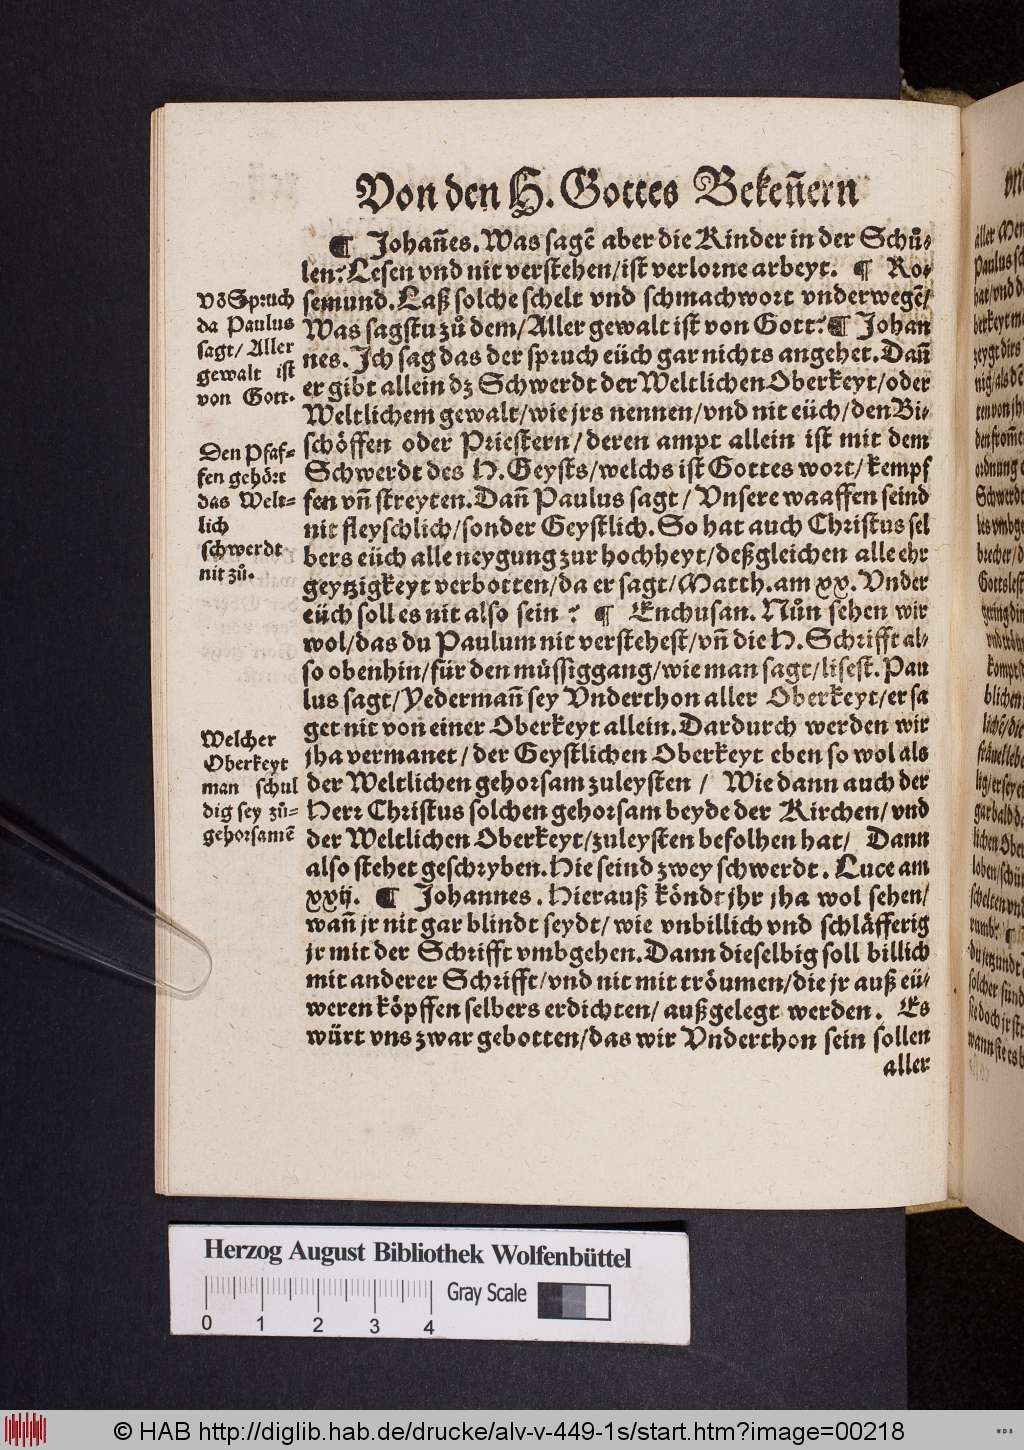 Von den H. Gottes Bekeñern
¶ Johañes. Was sagẽ aber die Kinder in der Schů⸗
len? Lesen vnd nit verstehen/ ist verlorne arbeyt. ¶ Ro⸗
semund. Laß solche schelt vnd schmachwort vnderwegẽ/
Was sagstu zů dem/ Aller gewalt ist von Gott? ¶ Johan
nes. Ich sag das der spruch eüch gar nichts angehet. Dañ
er gibt allein dz Schwerdt der Weltlichen Oberkeyt/ oder
Weltlichem gewalt/ wie jrs nennen/ vnd nit eüch/ den Bi⸗
schöffen oder Priestern/ deren ampt allein ist mit dem
Schwerdt des H. Geysts/ welchs ist Gottes wort/ kempf
fen vñ streyten. Dañ Paulus sagt/ Vnsere waaffen seind
nit fleyschlich/ sonder Geystlich. So hat auch Christus sel
bers eüch alle neygung zur hochheyt/ deßgleichen alle ehr
geytzigkeyt verbotten/ da er sagt/ Matth. am xx. Vnder
eüch soll es nit also sein? ¶ Enchusan. Nůn sehen wir
wol/ das du Paulum nit verstehest/ vñ die H. Schrifft al⸗
so obenhin/ für den müssiggang/ wie man sagt/ lisest. Pau
lus sagt/ Yedermañ sey Vnderthon aller Oberkeyt/ er sa
get nit von einer Oberkeyt allein. Dardurch werden wir
jha vermanet/ der Geystlichen Oberkeyt eben so wol als
der Weltlichen gehorsam zuleysten/ Wie dann auch der
Herr Christus solchen gehorsam beyde der Kirchen/ vnd
der Weltlichen Oberkeyt/ zuleysten befolhen hat/ Dann
also stehet geschryben. Hie seind zwey schwerdt. Luce am
xxij. ¶ Johannes. Hierauß köndt jhr jha wol sehen/
wañ jr nit gar blindt seydt/ wie vnbillich vnd schläfferig
jr mit der Schrifft vmbgehen. Dann dieselbig soll billich
mit anderer Schrifft/ vnd nit mit tröumen/ die jr auß eü⸗
weren köpffen selbers erdichten/ außgelegt werden. Es
würt vns zwar gebotten/ das wir Vnderthon sein sollen
aller
Võ Spruch
da Paulus
sagt/ Aller
gewalt ist
von Gott.
Den Pfaf⸗
fen gehört
das Welt⸗
lich
schwerdt
nit zů.
Welcher
Oberkeyt
man schul
dig sey zů⸗
gehorsamẽ
Herzog August Bibliothek Wolfenbüttel
Gray Scale
0 1 2 3 4
© HAB http://diglib.hab.de/drucke/alv-v-449-1s/start.htm?image=00218